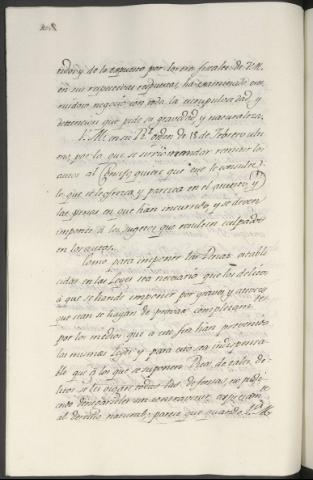 nidos y de lo expuesto por los tres fiscales de V.M.
en sus respectivas respuestas, ha examinado este
ruidoso negocio con toda la escrupulosidad y
detencion que pide su gravedad y naturaleza.
V.M. en su Rl. orden de 18 de Febrero ulti
mo, por la que se sirvió mandar remitir los
autos al Consejo, quiere que este le consulte
lo que se le ofrezca, y parezca en el asunto, y
las penas en que han incurrido, y se deven
imponer á los sugetos que resulten culpados
en los autos.
Como para imponer las Penas estable
cidas en las Leyes sea necesario que los delitos
á que se hande imponer por graves y atroces
que sean se hayan de provar completamte.
por los medios que a este fin han prevenido
las mismas Leyes, y para esto sea indispensa
ble que á los que se suponen Reos de tales de
litos se les oigan todas sus defensas, no pudi
endo desatender sin contravenir
al derecho natural; parece que quando V.M.